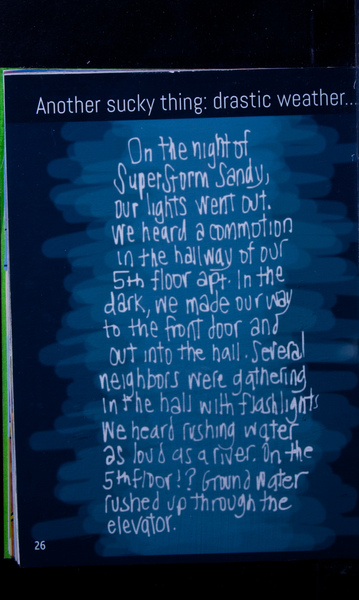 Another sucky thing: drastic weather...
On the night of
Superstorm Sandy,
our lights went out.
We heard a commotion
in the hallway of our
5th floor apt. In the
dark, we made our way
to the front door and
out into the hall. Several
neighbors were gathering
in the hall with flashlights
We heard rushing water
as loud as a river. On the
5th floor!? Ground water
rushed up through the
elevator.
26